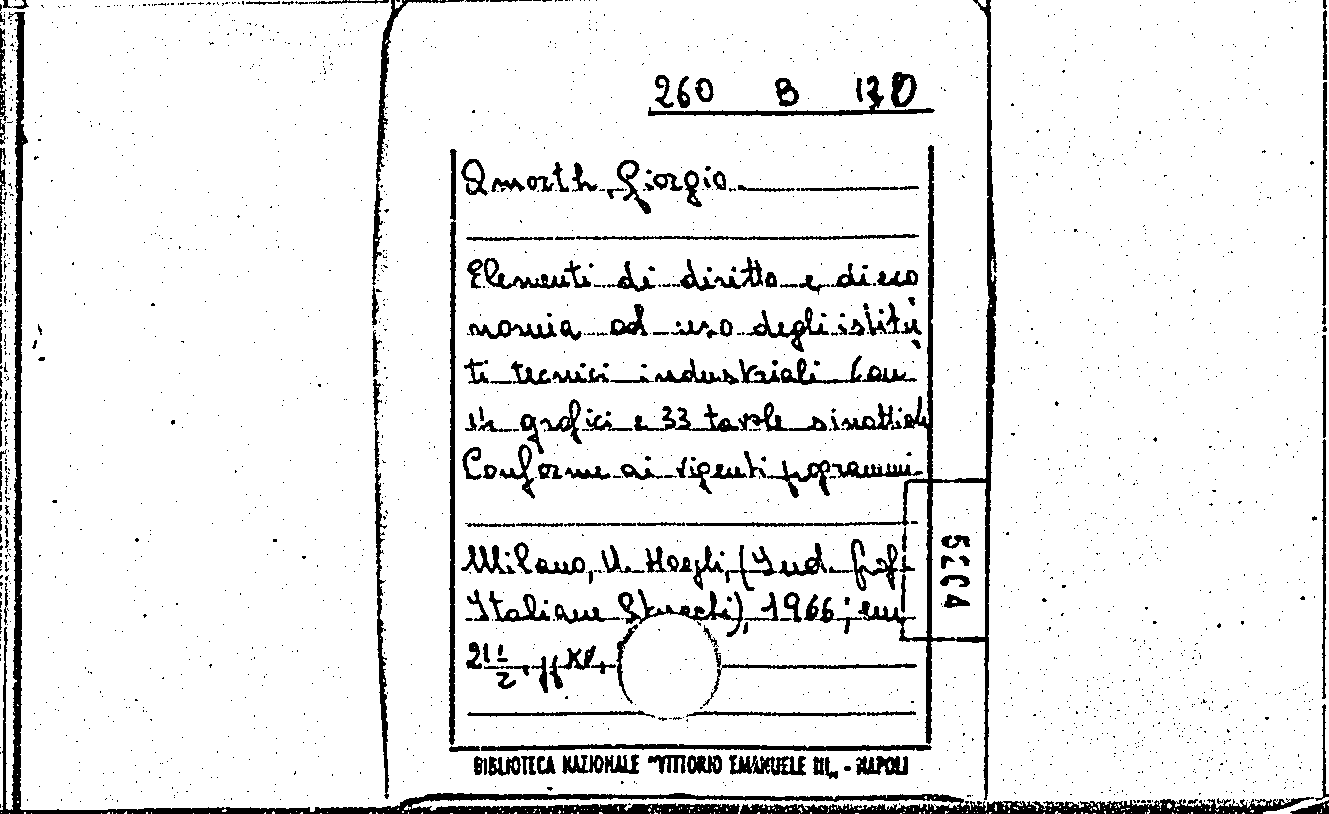 260 B 130
Amorth, Giorgio.
Elementi di diritto e di eco
nomia ad uso degli istitu
ti tecnici industriali Con
grafici e 33 tavole sinottiche
Conforme ai vigenti pogrammi.
Milano, U. Hoepli, (Ind. Graf.
Italiane Stucchi), 1966; cm
21 1/2, pp XV,
BIBLIOTECA NAZIONALE "VITTORIO EMANUELE III„ - NAPOLI